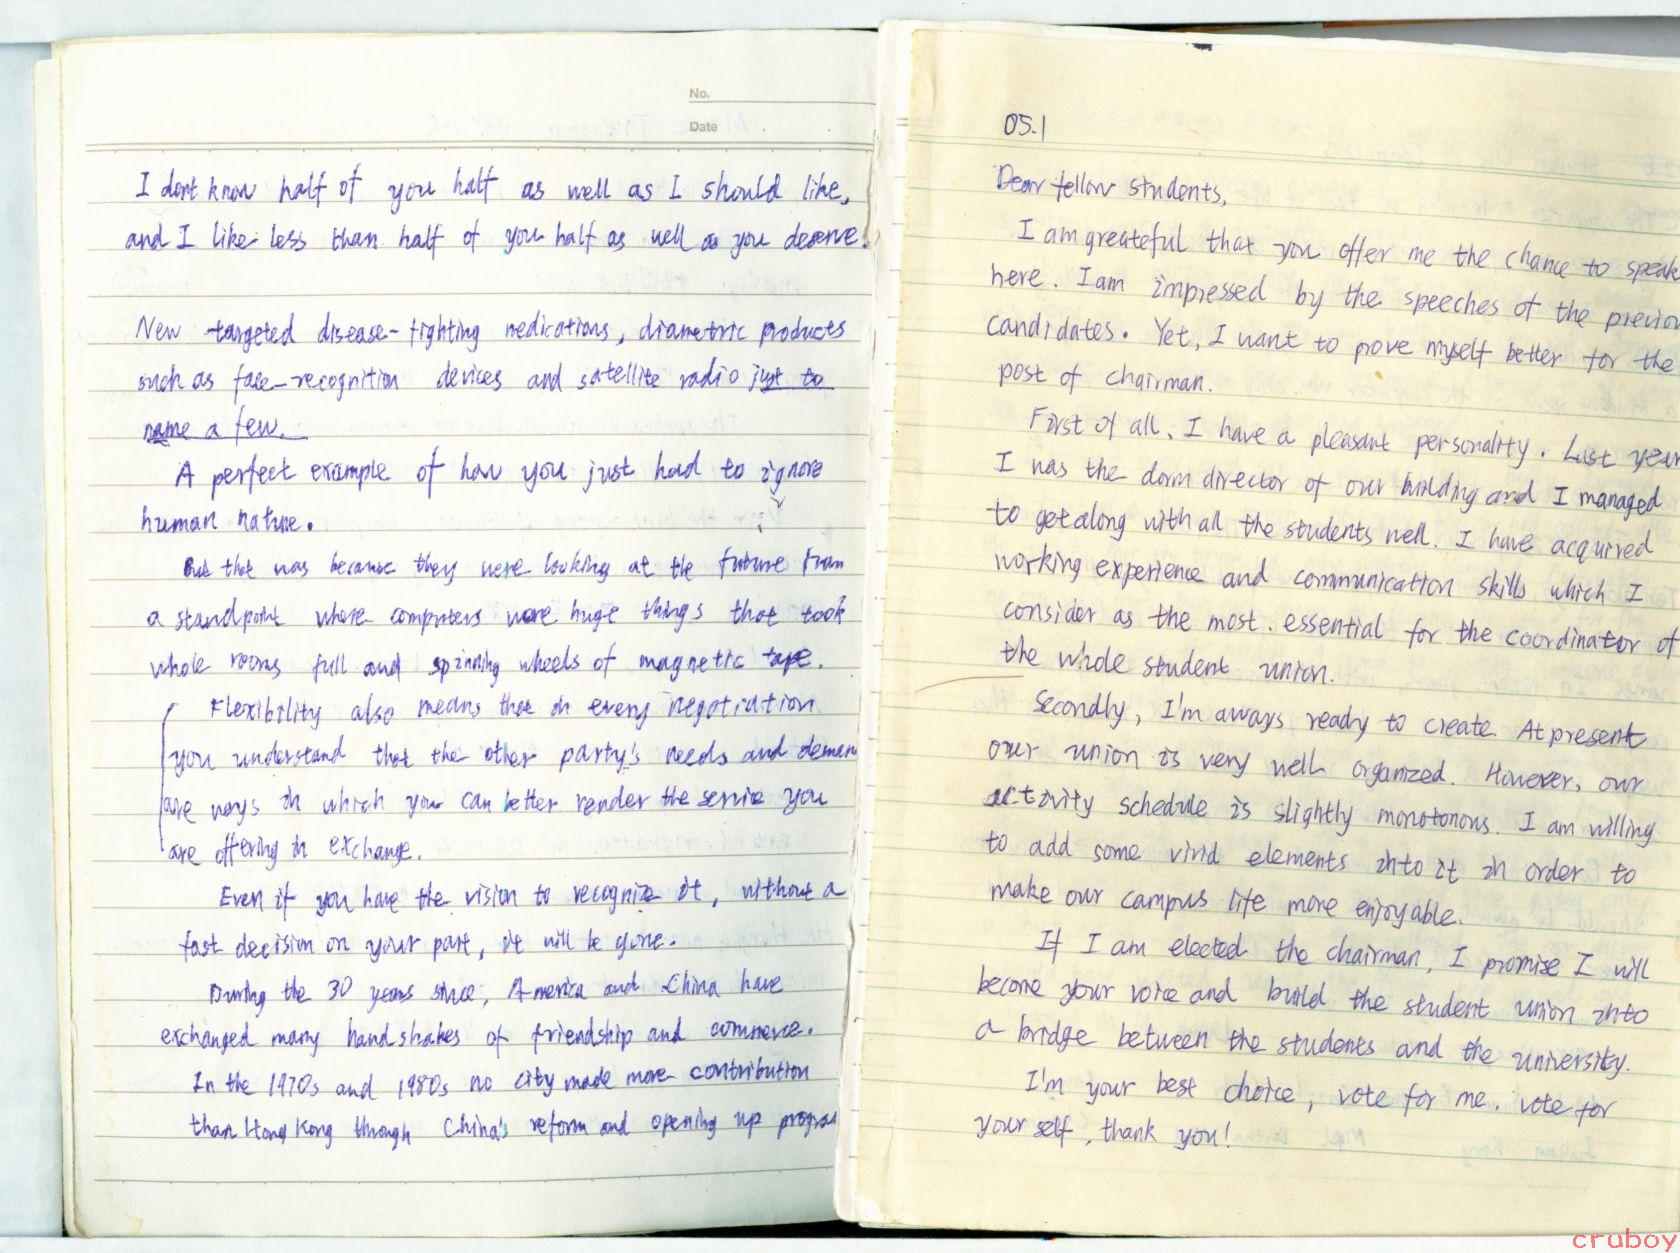 No.
Date
I dont know half of you half as well as I should like,
and I like less than half of you half as well as you deserve.
New targeted disease-fighting medications, diametric products
such as face-recognition devices and satellite radio just to
name a few.
A perfect example of how you just had to ignore
human nature.
But that was because they were looking at the future from
a standpoint where computers were huge things that took
whole rooms full and spinning wheels of magnetic tape.
Flexibility also means that in every negotiation
you understand that the other party's needs and deman
are ways in which you can better render the service you
are offering in exchange.
Even if you have the vision to recognize it, without a
fast decision on your part, it will be gone.
During the 30 years since, America and China have
exchanged many handshakes of friendship and commerce.
In the 1970s and 1980s no city made more contribution
than Hong Kong through China's reform and opening up progra
05.1
Dear fellow students,
I am greateful that you offer me the chance to speak
here. I am impressed by the speeches of the previou
candidates. Yet, I want to prove myself better for the
post of chairman.
First of all, I have a pleasant personality. Last year
I was the dorm director of our building and I managed
to get along with all the students well. I have acquired
working experience and communication skills which I
consider as the most essential for the coordinator of
the whole student union.
Secondly, I'm aways ready to create. At present
our union is very well organized. However, our
activity schedule is slightly monotonous. I am willing
to add some vivid elements into it in order to
make our campus life more enjoyable.
If I am elected the chairman, I promise I will
become your voice and build the student union into
a bridge between the students and the university.
I'm your best choice, vote for me, vote for
yourself, thank you!
cruboy